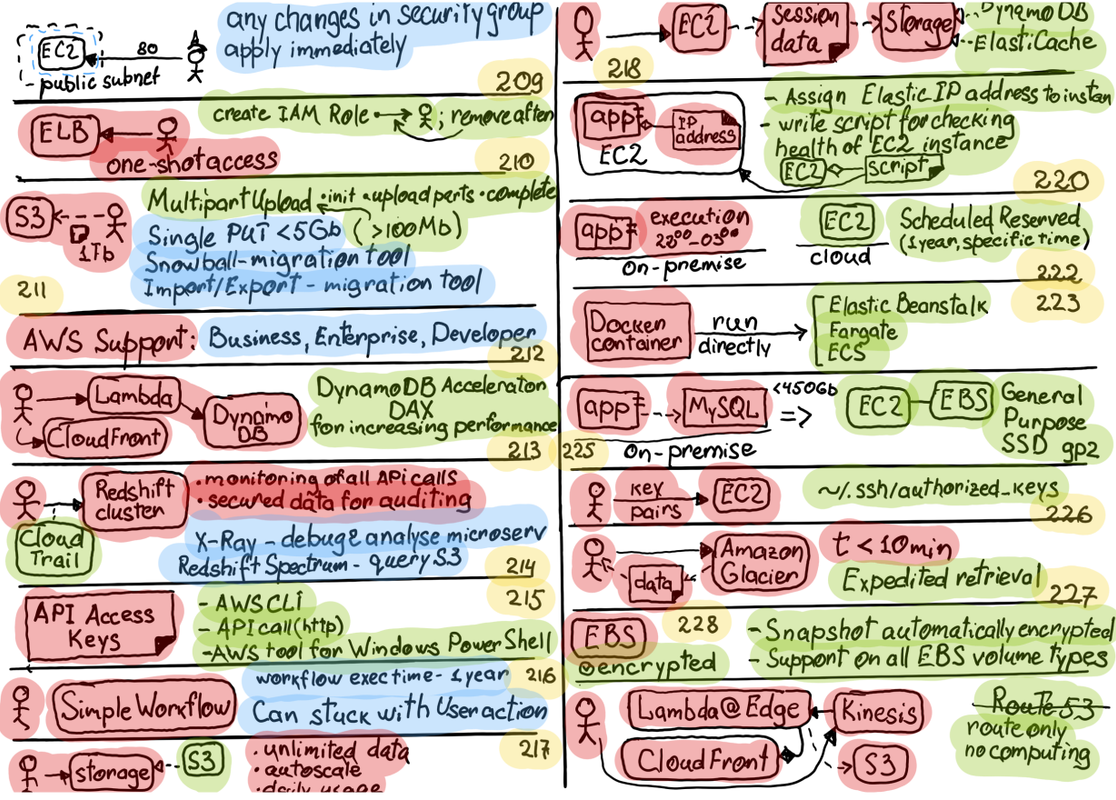 any changes in security group
apply immediately
EC2
80
public subnet
209
create IAM Role
; remove after
ELB
one-shot access
210
Multipart Upload •init •upload parts •complete
(>100Mb)
S3
1Tb
Single PUT <5Gb
Snowball-migration tool
Import/Export - migration tool
211
AWS Support: Business, Enterprise, Developer
212
Lambda
CloudFront
Dynamo
DB
DynamoDB Accelerator
DAX
for increasing performance
213
Redshift
cluster
• monitoring of all API calls
• secured data for auditing
Cloud
Trail
X-Ray - debug & analyse microserv
Redshift Spectrum - query S3
214
API Access
Keys
- AWS CLI
- API call (http)
- AWS tool for Windows PowerShell
215
Simple Workflow
workflow exec time - 1 year
Can stuck with User action
216
storage
S3
• unlimited data
• autoscale
• daily usage
217
EC2
Session
data
Storage
DynamoDB
ElastiCache
218
app
IP
address
EC2
- Assign Elastic IP address to instan
- write script for checking
health of EC2 instance
EC2
script
220
app
execution
22⁰⁰-03⁰⁰
on-premise
EC2
cloud
Scheduled Reserved
(1year, specific time)
222
Docker
container
run
directly
Elastic Beanstalk
Fargate
ECS
223
app
MySQL
<450Gb
=>
on-premise
EC2
EBS
General
Purpose
SSD gp2
225
key
pairs
EC2
~/.ssh/authorized_keys
226
data
Amazon
Glacier
t < 10min
Expedited retrieval
227
EBS
encrypted
228
- Snapshot automatically encrypted
- Support on all EBS volume types
Lambda@Edge
Kinesis
CloudFront
S3
Route 53
route only
no computing